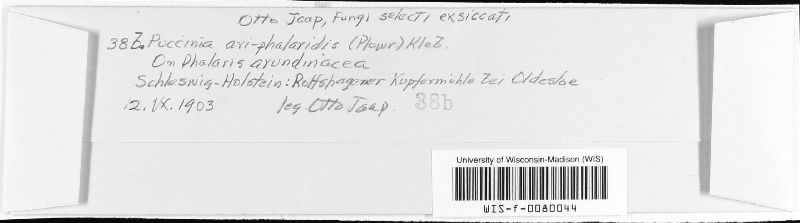 Otto Jaap, Fungi selecti exsiccati
38b. Puccinia ari-phalaridis (Plowr) Kleb.
On Phalaris arundinacea
Schleswig-Holstein: Rolfshagener Kupfermühle bei Oldesloe
12. IX. 1903 leg Otto Jaap. 38b
University of Wisconsin-Madison (WIS)
WIS-f-0080044